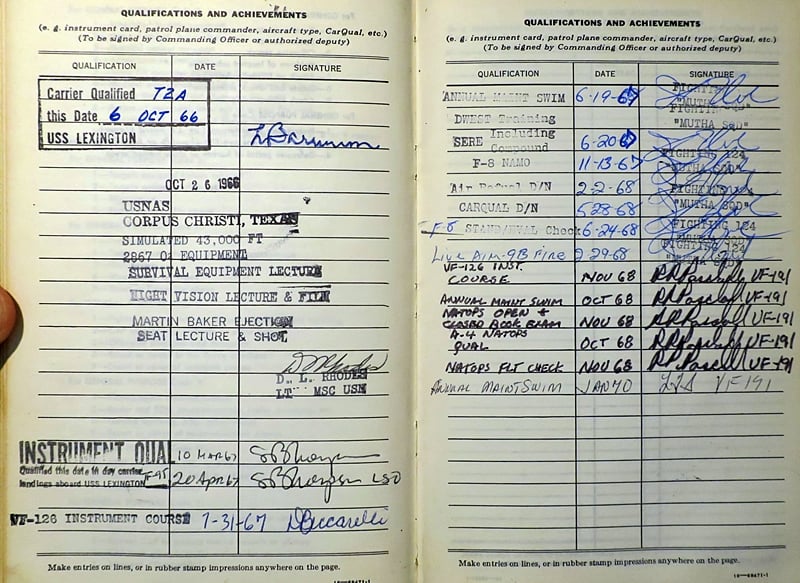 QUALIFICATIONS AND ACHIEVEMENTS
(e. g. instrument card, patrol plane commander, aircraft type, CarQual, etc.)
(To be signed by Commanding Officer or authorized deputy)
QUALIFICATION DATE SIGNATURE
Carrier Qualified T2A
this Date 6 OCT 66
USS LEXINGTON
OCT 26 1966
USNAS
CORPUS CHRISTI, TEXAS
SIMULATED 43,000 FT
2867 O2 EQUIPMENT
SURVIVAL EQUIPMENT LECTURE
NIGHT VISION LECTURE & FILM
MARTIN BAKER EJECTION
SEAT LECTURE & SHOT
D. L. RHODES
LT MSC USN
INSTRUMENT QUAL 10 MAR 67
Qualified this date in day carrier
landings aboard USS LEXINGTON 20 APR 67 LSO
VF-126 INSTRUMENT COURSE 7-31-67
Make entries on lines, or in rubber stamp impressions anywhere on the page.
QUALIFICATIONS AND ACHIEVEMENTS
(e. g. instrument card, patrol plane commander, aircraft type, CarQual, etc.)
(To be signed by Commanding Officer or authorized deputy)
QUALIFICATION DATE SIGNATURE
ANNUAL MAINT SWIM 6-19-67 "MUTHA SOD"
DWEST Training "MUTHA SOD"
SERE Including Compound 6-20-67 FIGHTING 124
F-8 NAMO 11-13-67 "MUTHA SOD"
Air Refuel D/N 2-2-68 FIGHTING 124
CARQUAL D/N 5-28-68 "MUTHA SOD"
F-8 STAND/EVAL Check 6-24-68 FIGHTING 124
Live Aim-9B Fire 2-29-68 FIGHTING 124
VF-126 INST.
COURSE NOV 68 VF-191
ANNUAL MAINT SWIM OCT 68 VF-191
NATOPS OPEN +
CLOSED BOOK EXAM NOV 68 VF-191
A-4 NATOPS
QUAL OCT 68 VF-191
NATOPS FLT CHECK NOV 68 VF-191
ANNUAL MAINT SWIM JAN 70 VF 191
Make entries on lines, or in rubber stamp impressions anywhere on the page.